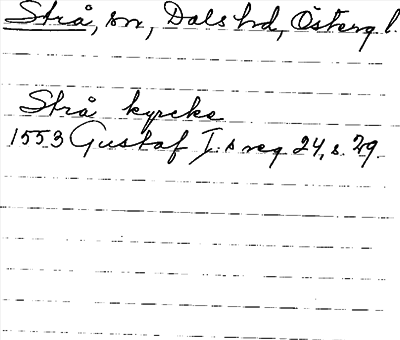 Strå, sn, Dals hd, Östergl.
Strå kyrcke
1553 Gustaf I:s reg 24, s. 29.